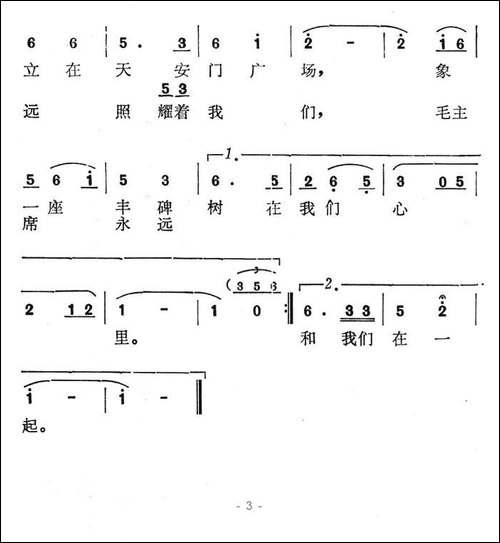 6 6 | 5. 3 | 6 i | 2 - | 2 i 6 |
立 在 天 安 门 广 场， 象
5 3
远 照 耀着 我 们， 毛主
1.
5 6 i | 5 3 | 6. 5 | 2 6 5 | 3 0 5 |
一 座 丰 碑 树 在 我 们 心
席 永 远
3
(3 5 6
2.
2 1 2 | 1 - | 1 0 :‖ 6. 3 3 | 5 2 |
里。 和 我们 在 一
i - | i - ‖
起。
- 3 -